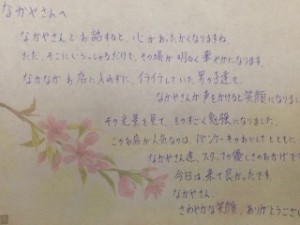 なかやさんへ
なかやさんとお話すると、心があったかくなりますね。
ただ、そこにいらっしゃるだけで、その場が明るく華やかになります。
なかなかお店に入れずに、イライラしていた男の子達も、
なかやさんが声をかけると笑顔になりまし
その光景を見て、ものすごく勉強になりました。
このお店が人気なのは、パンケーキのおいしさとともに、
なかやさん達、スタッフの優しさのおかげで
今日は来て良かったです
なかやさん、
さわやかな笑顔、ありがとうござ